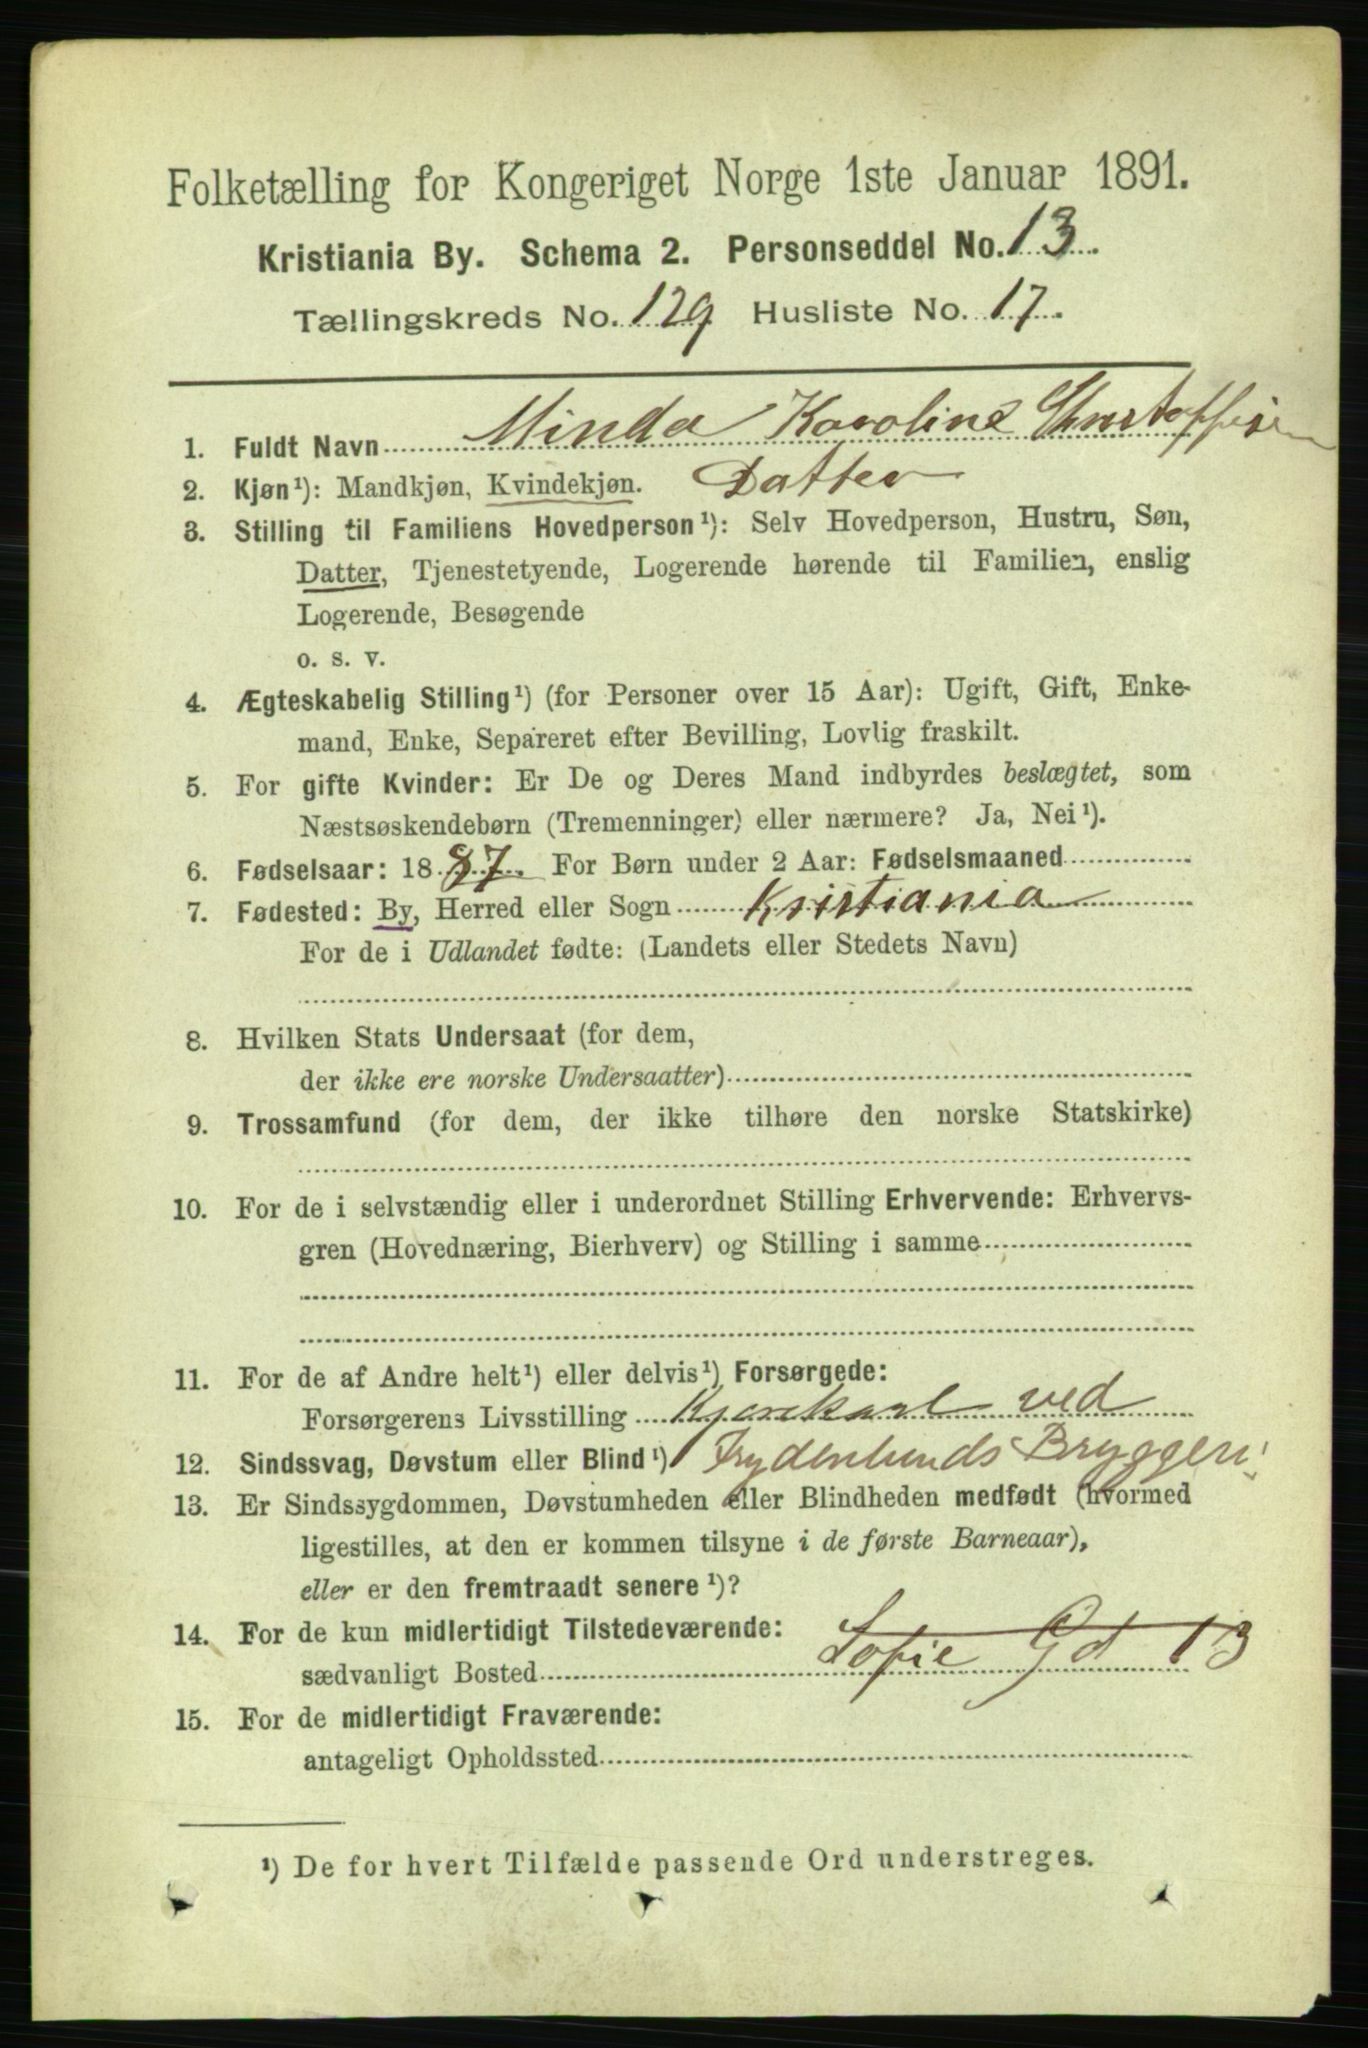 Folketælling for Kongeriget Norge 1ste Januar 1891.
Kristiania By. Schema 2. Personseddel No. 13.
Tællingskreds No. 129 Husliste No. 17.
1. Fuldt Navn Minda Karoline Christoffersen
2. Kjøn¹): Mandkjøn, Kvindekjøn. Datter
3. Stilling til Familiens Hovedperson¹): Selv Hovedperson, Hustru, Søn,
Datter, Tjenestetyende, Logerende hørende til Familien, enslig
Logerende, Besøgende
o. s. v.
4. Ægteskabelig Stilling¹) (for Personer over 15 Aar): Ugift, Gift, Enke-
mand, Enke, Separeret efter Bevilling, Lovlig fraskilt.
5. For gifte Kvinder: Er De og Deres Mand indbyrdes beslægtet, som
Næstsøskendebørn (Tremenninger) eller nærmere? Ja, Nei¹).
6. Fødselsaar: 1887. For Børn under 2 Aar: Fødselsmaaned
7. Fødested: By, Herred eller Sogn Kristiania
For de i Udlandet fødte: (Landets eller Stedets Navn)
8. Hvilken Stats Undersaat (for dem,
der ikke ere norske Undersaatter)
9. Trossamfund (for dem, der ikke tilhøre den norske Statskirke)
10. For de i selvstændig eller i underordnet Stilling Erhvervende: Erhvervs-
gren (Hovednæring, Bierhverv) og Stilling i samme
11. For de af Andre helt¹) eller delvis¹) Forsørgede:
Forsørgerens Livsstilling Kjørekarl ved
12. Sindssvag, Døvstum eller Blind¹) Frydenlunds Bryggeri
13. Er Sindssygdommen, Døvstumheden eller Blindheden medfødt (hvormed
ligestilles, at den er kommen tilsyne i de første Barneaar),
eller er den fremtraadt senere¹)?
14. For de kun midlertidigt Tilstedeværende:
sædvanligt Bosted Sofie Gd 13
15. For de midlertidigt Fraværende:
antageligt Opholdssted
¹) De for hvert Tilfælde passende Ord understreges.